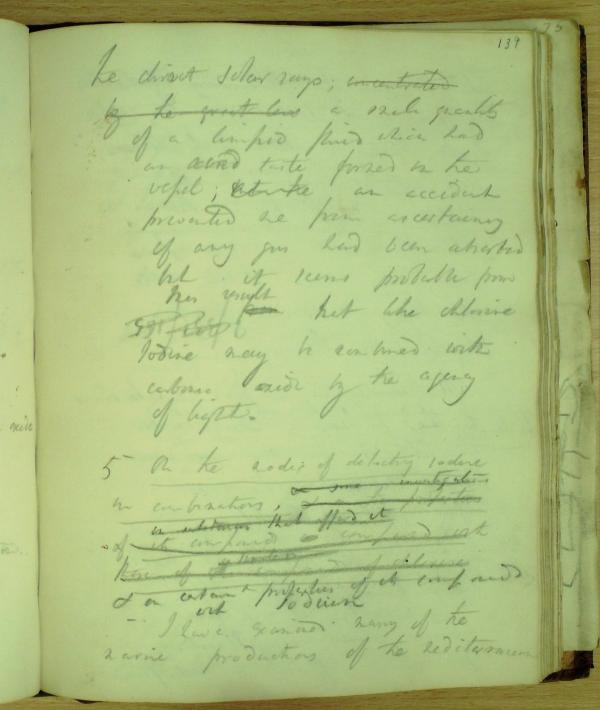 139
75
the direct solar rays; concentrated
by the great lens a small quantity
of a limpid fluid which had
an acid taste formed in the
vessel; an accident
prevented me from ascertaining
if any gas had been absorbed
but it seems probable from
this result
that like chlorine
Iodine may be combined with
carbonic oxide by the agency
of light.
5 On the modes of detecting iodine
& some investigations
in combinations, properties
on substances that afford it
of its compounds compared with
those of
& on certain properties of its compounds
with Sodium
I have examined many of the
marine productions of the mediterranean